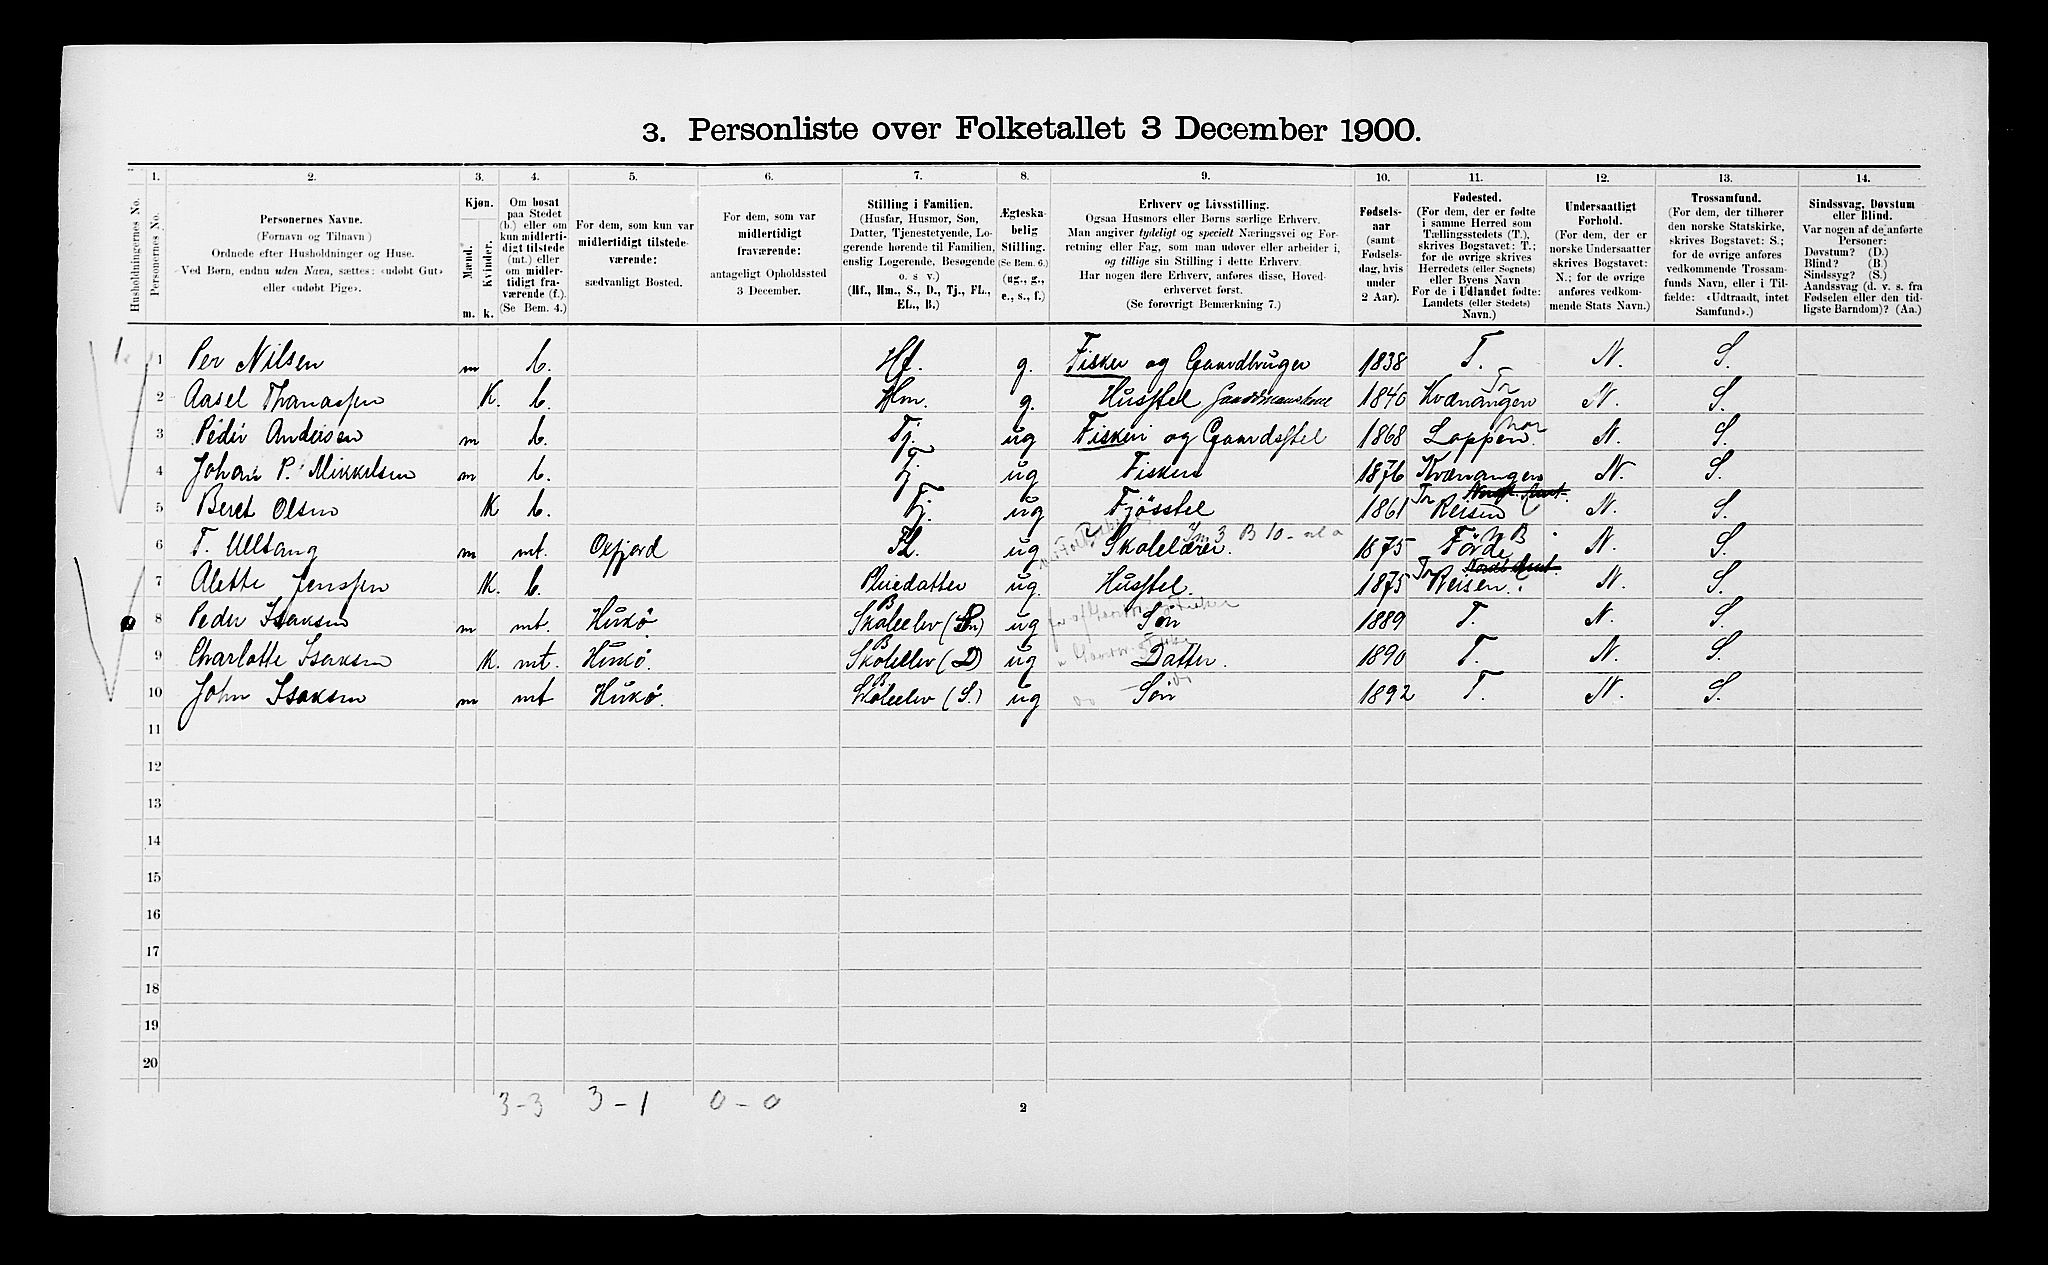 3. Personliste over Folketallet 3 December 1900.
1. 2. 3. 4. 5. 6. 7. 8. 9. 10. 11. 12. 13. 14.
Husholdningernes No.
Personernes No.
Personernes Navne.
(Fornavn og Tilnavn)
Ordnede efter Husholdninger og Huse.
Ved Børn, endnu uden Navn, sættes: «udøbt Gut»
eller «udøbt Pige».
Kjøn.
Mænd.
Kvinder.
m. k.
Om bosat
paa Stedet
(b.) eller om
kun midlerti-
digt tilstede
(mt.) eller
om midler-
tidigt fra-
værende (f.).
(Se Bem. 4.)
For dem, som kun var
midlertidigt tilstede-
værende:
sædvanligt Bosted.
For dem, som var
midlertidigt
fraværende:
antageligt Opholdssted
3 December.
Stilling i Familien.
(Husfar, Husmor, Søn,
Datter, Tjenestetyende, Lo-
gerende hørende til Familien,
enslig Logerende, Besøgende
o. s v.)
(Hf., Hm., S., D., Tj., FL.,
EL., B.)
Ægteska-
belig
Stilling.
(Se Bem. 6.)
(ug., g.,
e., s., f.)
Erhverv og Livsstilling.
Ogsaa Husmors eller Børns særlige Erhverv.
Man angiver tydeligt og specielt Næringsvei og For-
retning eller Fag, som man udøver eller arbeider i,
og tillige sin Stilling i dette Erhverv.
Har nogen flere Erhverv, anføres disse, Hoved-
erhvervet først.
(Se forøvrigt Bemærkning 7.)
Fødsels-
aar
(samt
Fødsels-
dag, hvis
under
2 Aar).
Fødested.
(For dem, der er fødte
i samme Herred som
Tællingsstedets (T.),
skrives Bogstavet: T.;
for de øvrige skrives
Herredets (eller Sognets)
eller Byens Navn
For de i Udlandet fødte:
Landets (eller Stedets)
Navn.)
Undersaatligt
Forhold.
(For dem, der er
norske Undersaatter
skrives Bogstavet:
N.; for de øvrige
anføres vedkom-
mende Stats Navn.)
Trossamfund.
(For dem, der tilhører
den norske Statskirke,
skrives Bogstavet: S.;
for de øvrige anføres
vedkommende Trossam-
funds Navn, eller i Til-
fælde: «Udtraadt, intet
Samfund».)
Sindssvag, Døvstum
eller Blind.
Var nogen af de anførte
Personer:
Døvstum? (D.)
Blind? (B.)
Sindssyg? (S.)
Aandssvag (d. v. s. fra
Fødselen eller den tid-
ligste Barndom)? (Aa.)
1 Per Nilsen m b. Hf. g. Fisker og Gaardbruger 1838 T. N. S.
2 Aasel Thomassen K. b. Hm. g. Husstel 1840 Kvænangen Tr N. S.
3 Peder Andersen m b. Tj. ug Fiskeri og Gaardsstel 1868 Loppen. N. S.
4 Johan P. Mikkelsen m b. Tj. ug Fiskeri 1876 Kvænangen N. S.
5 Beret Olsen K b. Tj. ug Fjøsstel 1861 Reisen N. S.
6 T. Ulltang m mt. Oxfjord FL. ug Skolelærer. 1875 Førde N B N. S.
7 Alette Jenssen K. b. Pleiedatter ug. Husstel. 1875 Reisen. N. S.
8 Peder Isaksen m mt. Hukø. Skoleelev (Sn) B ug Søn 1889 T. N. S.
9 Charlotte Isaksen K. mt. Hukø. Skoleelev (D) B ug Datter. 1890 T. N. S.
10 John Isaksen m mt Hukø. Skoleelev (S.) B ug Søn 1892 T. N. S.
11
12
13
14
15
16
17
18
19
20
3-3 3-1 0-0
2